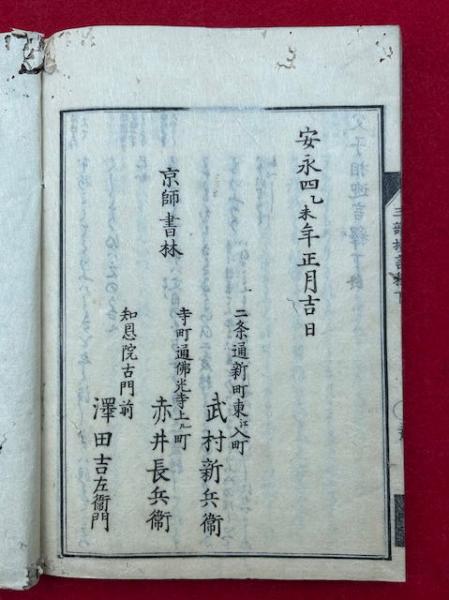 安永四乙未年正月吉日
京師書林
二条通新町東江入町
武村新兵衞
寺町通佛光寺上ル町
赤井長兵衞
知恩院古門前
澤田吉左衞門